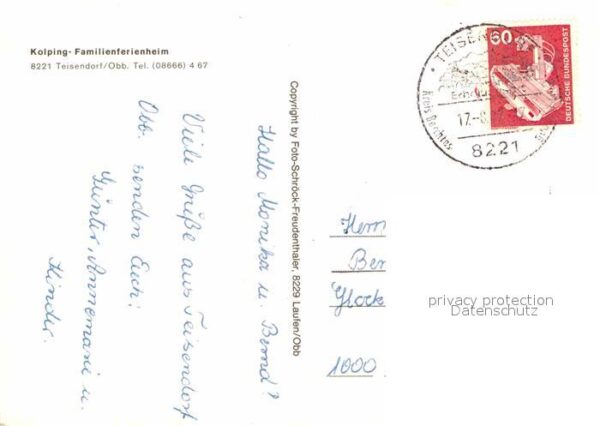 Kolping-Familienferienheim
8221 Teisendorf/Obb. Tel. (08666) 4 67
Hallo Monika u. Bernd!
Viele Grüße aus Teisendorf
Obb. senden Euch:
Günter, Annemarie u.
Kinder.
Copyright by Foto-Schröck-Freudenthaler, 8229 Laufen/Obb
TEISEN
Kreis Berchtes
17.-8.
8221
60
DEUTSCHE BUNDESPOST
Herrn
Ber
Glock
1000
privacy protection
Datenschutz